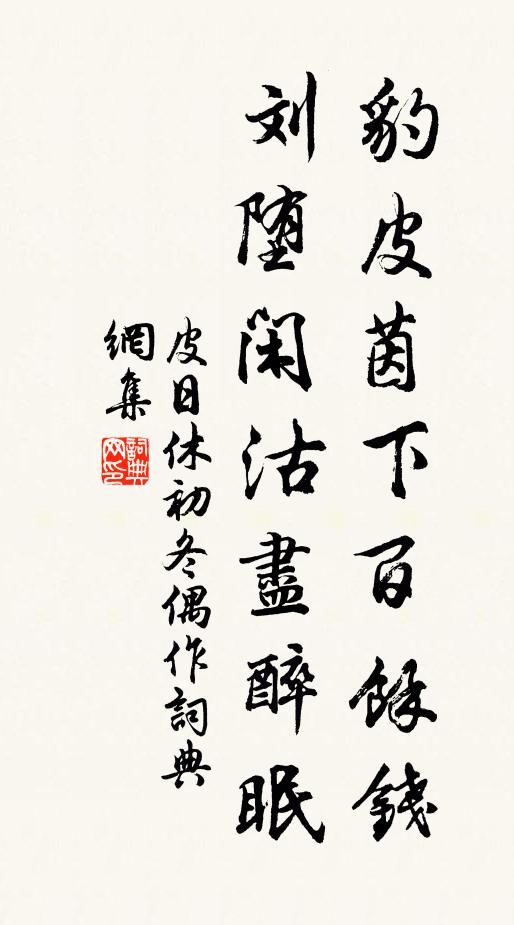 豹皮茵下百餘錢
刘堕閑沽盡醉眠
皮日休初冬偶作詞典
網集
詞典
网印